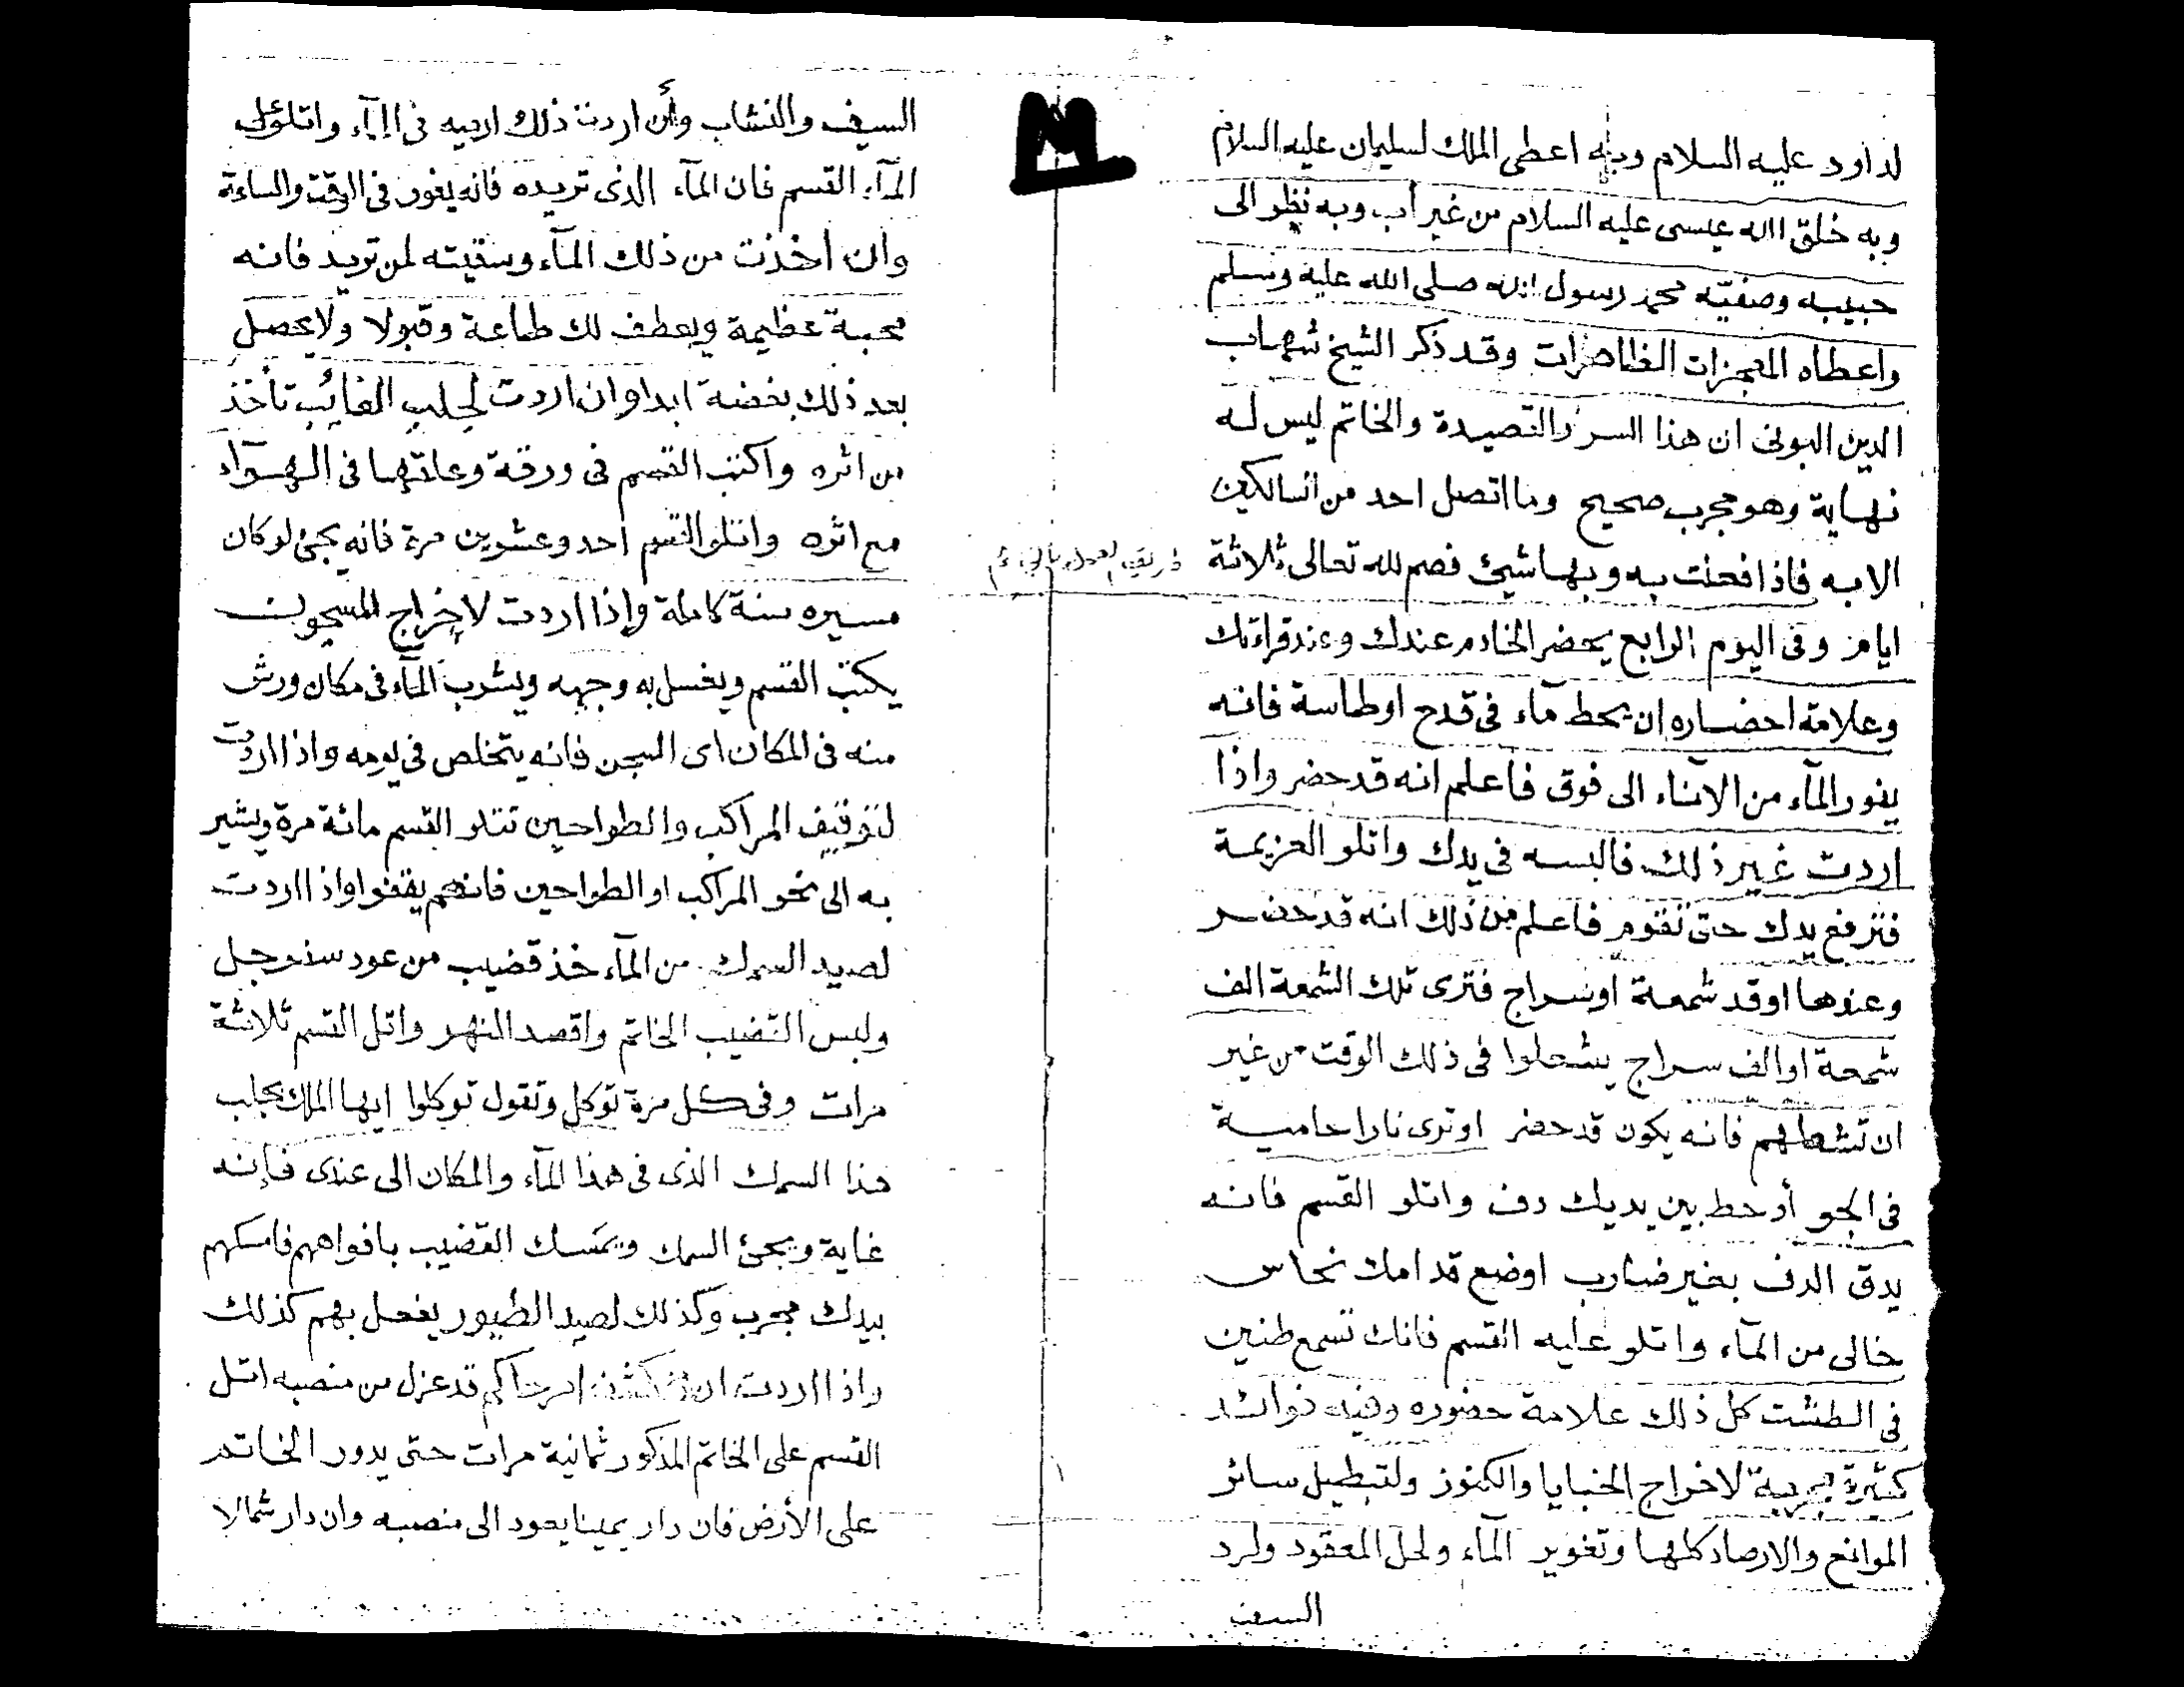 لداود عليه السلام وبه اعطى الملك لسليمان عليه السلام
وبه خلق الله عيسى عليه السلام من غير أب وبه نظر الى
حبيبه وصفيّه محمد رسول الله صلى الله عليه وسلم
واعطاه المعجزات الظاهرات وقد ذكر الشيخ شهاب
الدين البونى ان هذا السر والقصيدة والخاتم ليس له
نهاية وهو مجرب صحيح وما اتصل احد من السالكين
الا به فاذا فعلت به وبها شيئ فصم لله تعالى ثلاثة
ايام وفى اليوم الرابع يحضر الخادم عندك وعند قراءتك
وعلامة احضاره ان يحط مآء فى قدح او طاسة فانه
يفور المآء من الاناء الى فوق فاعلم انه قد حضر واذا
اردت غير ذلك فالبسه فى يدك واتلو العزيمة
فترفع يدك حتى تقوم فاعلم من ذلك انه قد حضر
وعندها اوقد شمعة او سراج فترى تلك الشمعة الف
شمعة او الف سراج يشعلوا فى ذلك الوقت من غير
ان تشعلهم فانه يكون قد حضر او ترى نارا حامية
فى الجو أو حط بين يديك دف واتلو القسم فانه
يدق الدف بغير ضارب او ضع قدامك نحاس
خالى من المآء واتلو عليه القسم فانك تسمع طنين
فى الطشت كل ذلك علامة حضوره وفيه فوائد
كثيرة مجربة لاخراج الخبايا والكنوز ولتبطيل سائر
الموانع والارصاد كلها وتغوير المآء ولحل المعقود ولرد
السيف
السيف والنشاب وأن اردت ذلك ارميه فى المآء واتلو على
المآء القسم فان المآء الذى تريده فانه يغور فى الوقت والساعة
وان اخذت من ذلك المآء وسقيته لمن تريد فانه
محبة عظيمة ويعطف لك طاعة وقبولا ولا يحصل
بعد ذلك بغضة ابدا وان اردت لجلب الغائب تأخذ
من اثره واكتب القسم فى ورقة وعلقها فى الهوآء
مع اثره واتلو القسم احد وعشرين مرة فانه يجئ لو كان
مسيره سنة كاملة وإذا اردت لاخراج المسجون
يكتب القسم ويغسل به وجهه ويشرب المآء فى مكان ورش
منه فى المكان اى السجن فانه يتخلص فى يومه واذا اردت
لتوقيف المراكب والطواحين تتلو القسم مائة مرة ويشير
به الى نحو المراكب او الطواحين فانهم يقفوا واذا اردت
لصيد السمك من المآء خذ قضيب من عود سفرجل
ولبس القضيب الخاتم واقصد النهر واتل القسم ثلاثة
مرات وفى كل مرة توكل وتقول توكلوا ايها الملك بجلب
هذا السمك الذى فى هذا المآء والمكان الى عندى فإنه
غاية ويجئ السمك ويمسك القضيب بافواههم فامسكهم
بيدك مجرب وكذلك لصيد الطيور يفعل بهم كذلك
واذا اردت ان تكشف امر حاكم قد عزل من منصبه اتل
القسم على الخاتم المذكور ثمانية مرات حتى يدور الخاتم
على الأرض فان دار يمينا يعود الى منصبه وان دار شمالا